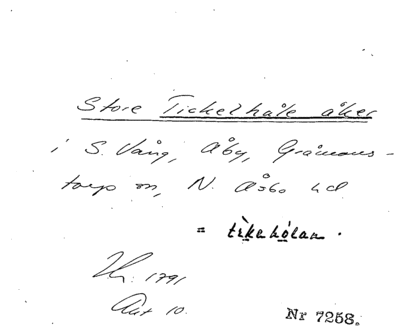 Store Tickelhåle åker
i S. Vång, Åby, Gråmans-
torps sn, N. Åsbo hd.
= tikahólan.
1791
Akt 10.
Nr 7258.